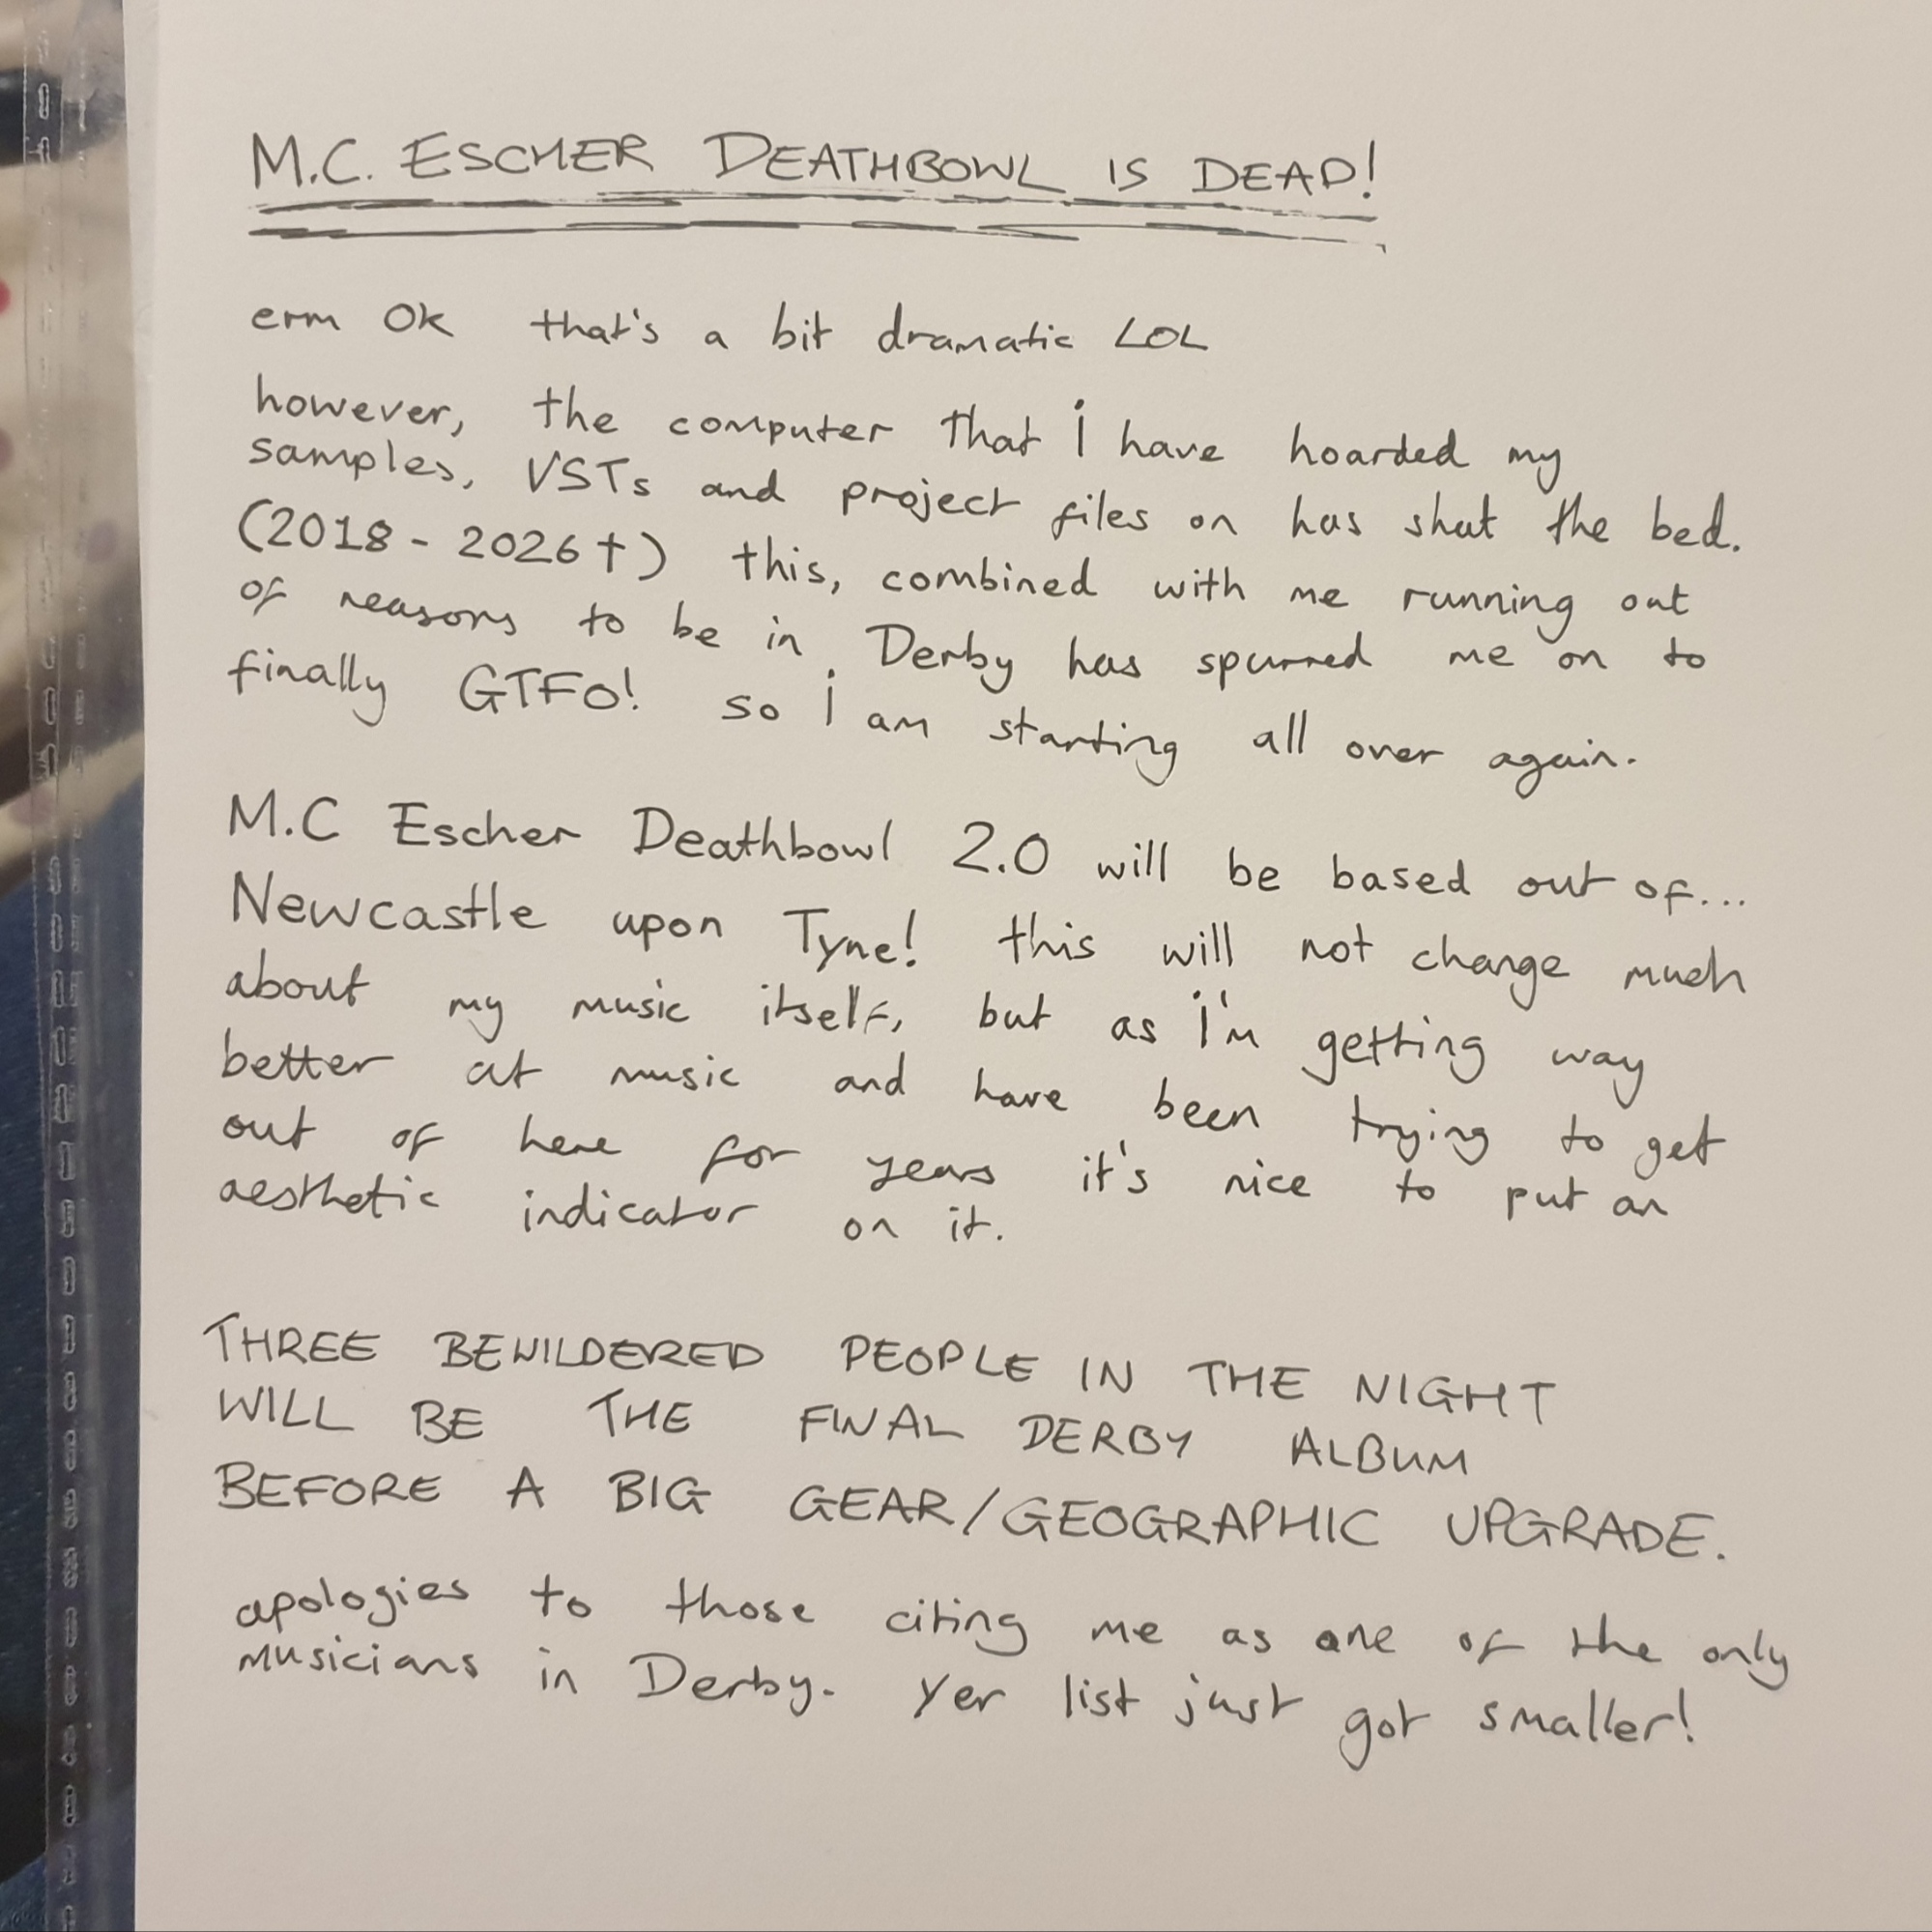 M.C. ESCHER DEATHBOWL IS DEAD!
erm OK that's a bit dramatic LOL
however, the computer that i have hoarded my
samples, VSTs and project files on has shat the bed.
(2018 - 2026†) this, combined with me running out
of reasons to be in Derby has spurred me on to
finally GTFO! so i am starting all over again.
M.C Escher Deathbowl 2.0 will be based out of...
Newcastle upon Tyne! this will not change much
about my music itself, but as i'm getting way
better at music and have been trying to get
out of here for years it's nice to put an
aesthetic indicator on it.
THREE BEWILDERED PEOPLE IN THE NIGHT
WILL BE THE FINAL DERBY ALBUM
BEFORE A BIG GEAR/GEOGRAPHIC UPGRADE.
apologies to those citing me as one of the only
musicians in Derby. Yer list just got smaller!